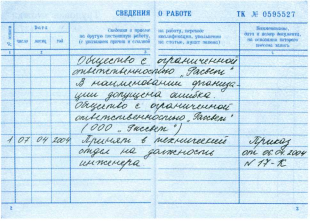 СВЕДЕНИЯ О РАБОТЕ ТК № 0595527
№ записи
Дата
число
месяц
год
Сведения о приеме на работу, переводе
на другую постоянную работу, квалификации, увольнении
(с указанием причин и ссылкой на статью, пункт закона)
Наименование,
дата и номер документа,
на основании которого
внесена запись
1 2 3 4
Общество с ограниченной
ответственностью "Рассвет"
В наименовании организа-
ции допущена ошибка
Общество с ограниченной
ответственностью "Рассвет"
(ООО "Рассвет")
1 07 04 2004 Принят в технический Приказ
отдел на должность от 06.04.2004
инженера N 17-К
2 3